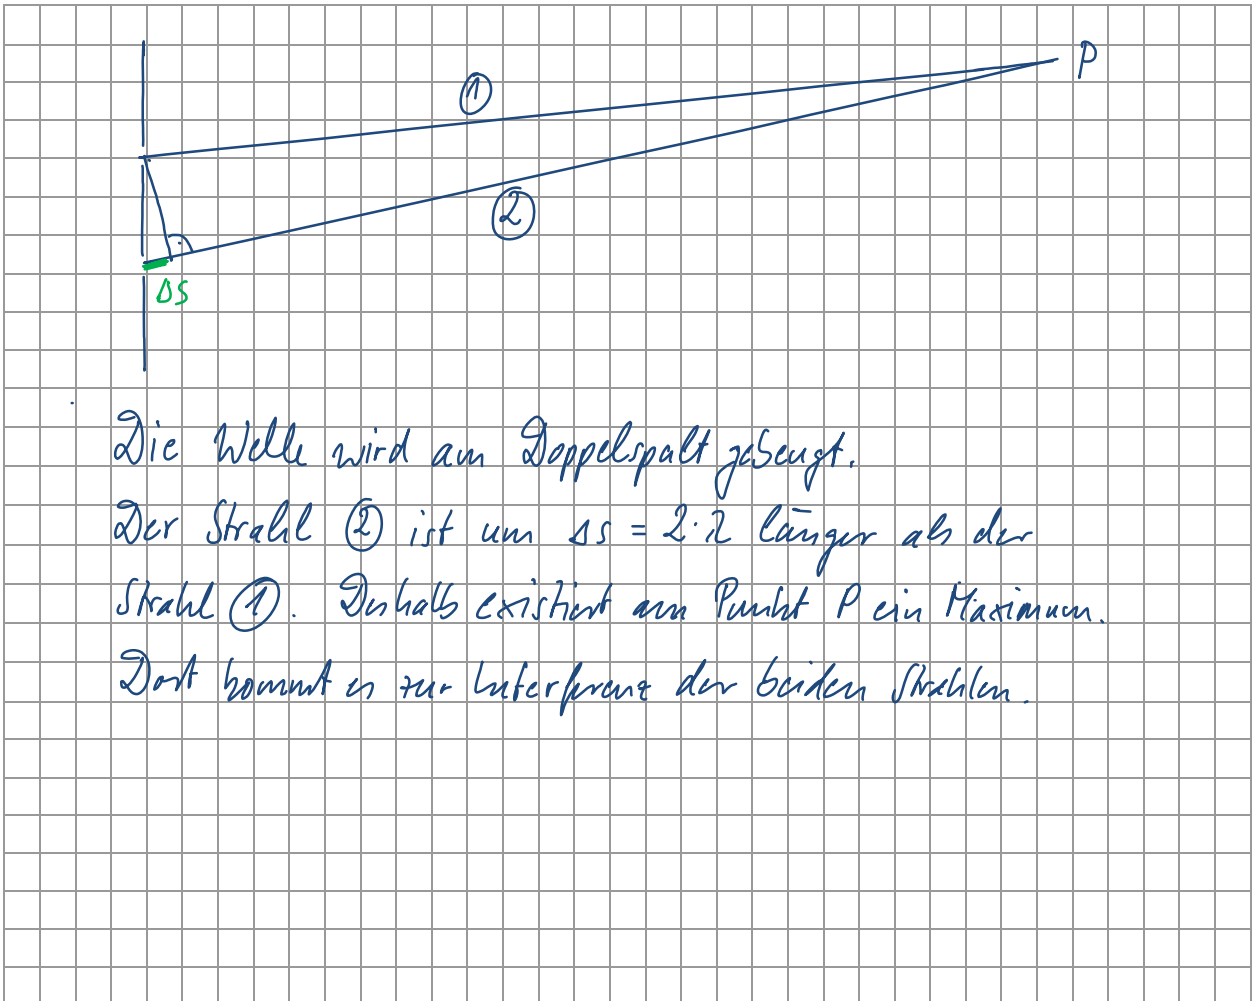 P
①
②
Δs
Die Welle wird am Doppelspalt gebeugt.
Der Strahl ② ist um Δs = 2·λ länger als der
Strahl ①. Deshalb existiert am Punkt P ein Maximum.
Dort kommt es zur Interferenz der beiden Strahlen.